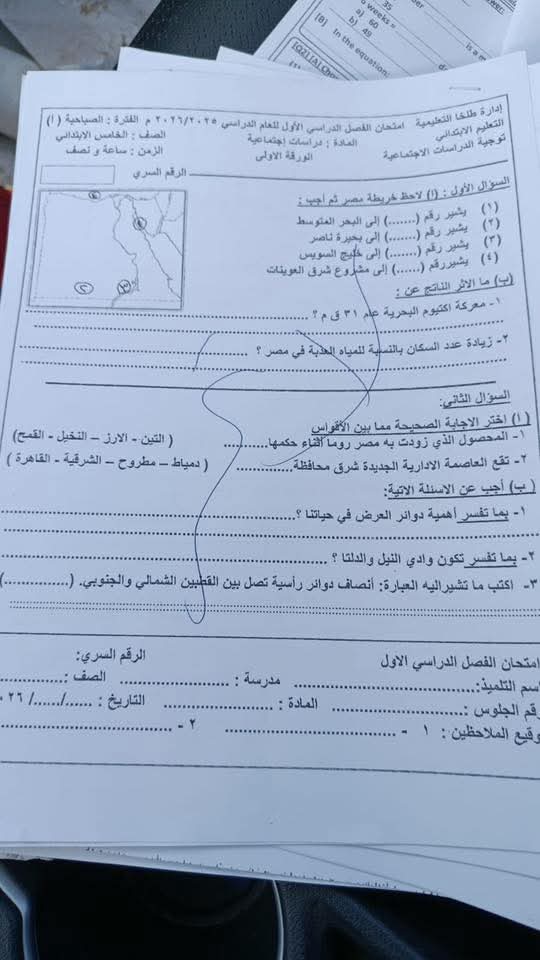 35
weeks =
a) 60
b) 49
[B] In the equation:
is a m
إدارة طلخا التعليمية امتحان الفصل الدراسي الأول للعام الدراسي ٢٠٢٦/٢٠٢٥ م الفترة : الصباحية ( أ )
التعليم الابتدائي المادة : دراسات إجتماعية الصف : الخامس الابتدائي
توجية الدراسات الاجتماعية الورقة الاولى الزمن : ساعة و نصف
الرقم السري
السؤال الأول : (أ) لاحظ خريطة مصر ثم أجب :
(١) يشير رقم (.......) إلى البحر المتوسط
(٢) يشير رقم (.......) إلى بحيرة ناصر
(٣) يشير رقم (.......) إلى خليج السويس
(٤) يشيررقم (......) إلى مشروع شرق العوينات
(ب) ما الاثر الناتج عن :
١- معركة اكتيوم البحرية عام ٣١ ق م ؟ ........................
٢- زيادة عدد السكان بالنسبة للمياه العذبة في مصر ؟ ........................
السؤال الثاني:
( أ ) اختر الاجابة الصحيحة مما بين الأقواس
١- المحصول الذي زودت به مصر روما أثناء حكمها............ ( التين - الارز – النخيل - القمح)
٢- تقع العاصمة الادارية الجديدة شرق محافظة............... ( دمياط – مطروح – الشرقية - القاهرة )
( ب) أجب عن الاسئلة الاتية:
١- بما تفسر أهمية دوائر العرض في حياتنا ؟........................
٢- بما تفسر تكون وادي النيل والدلتا ؟ ........................
٣- اكتب ما تشيراليه العبارة: أنصاف دوائر رأسية تصل بين القطبين الشمالي والجنوبي. (...............)
امتحان الفصل الدراسي الاول الرقم السري:
اسم التلميذ:........................ مدرسة : ........................ الصف : ...............
رقم الجلوس :........................ المادة : ........................ التاريخ : ....../....../ ٢٦
وقيع الملاحظين : ١ - ........................ ٢ - ........................